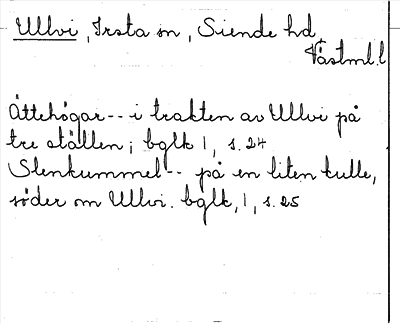 Ullvi, Irsta sn, Siende hd,
Västml.l
Ättehögar-- i trakten av Ullvi på
tre ställen; bglk 1, s. 24
Stenkummel-- på en liten kulle,
söder om Ullvi. bglk, 1, s. 25